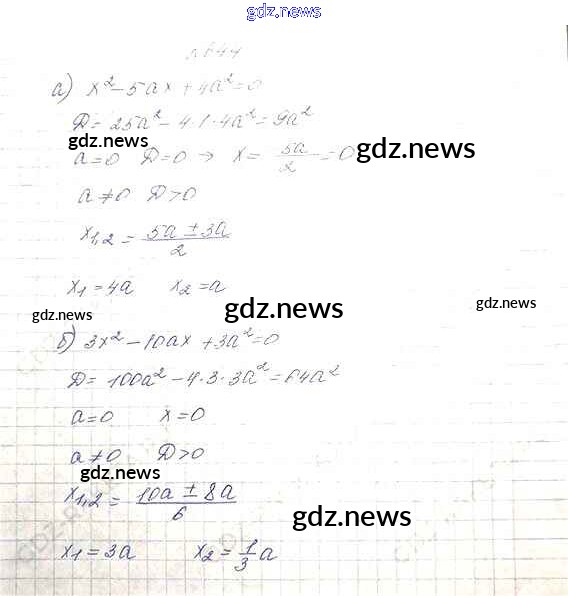 gdz.news
№644
а) x² – 5ax + 4a² = 0
D = 25a² – 4·1·4a² = 9a²
gdz.news
a = 0 D = 0 → x = 5a/2 = 0
gdz.news
a ≠ 0 D > 0
x₁,₂ = (5a ± 3a)/2
x₁ = 4a x₂ = a
gdz.news
gdz.news
gdz.news
б) 3x² – 10ax + 3a² = 0
D = 100a² – 4·3·3a² = 64a²
a = 0 x = 0
a ≠ 0 D > 0
gdz.news
x₁,₂ = (10a ± 8a)/6
gdz.news
x₁ = 3a x₂ = 1/3 a